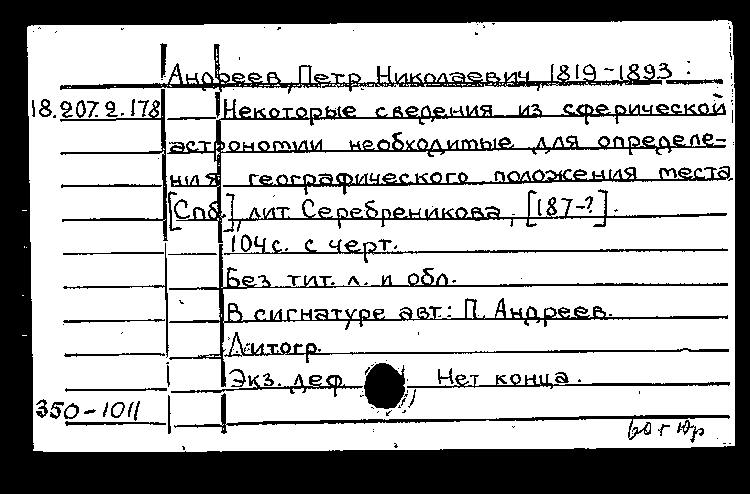 Андреев, Петр Николаевич, 1819-1893 :
18.207.2.178 Некоторые сведения из сферической
астрономии необходимые для определе-
ния географического положения места
[Спб.], лит. Серебреникова, [187-?].
104 с. с черт.
Без тит. л. и обл.
В сигнатуре авт.: П. Андреев.
Литогр.
Экз. деф. Нет конца.
350-1011